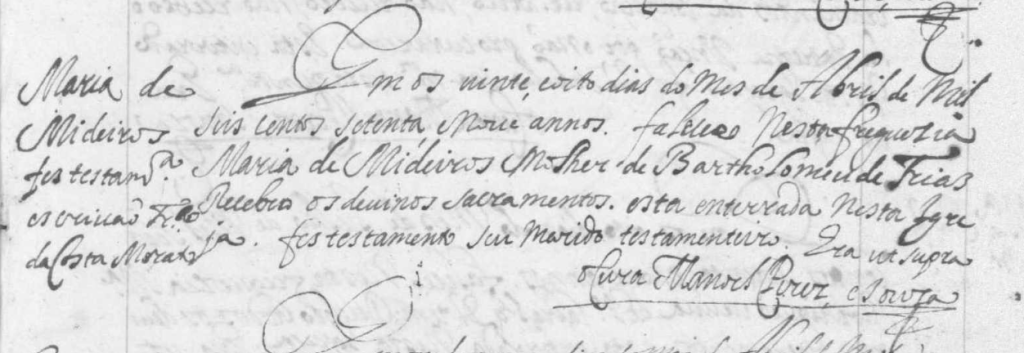 Maria de
Mideiros
fes testam.ª
escrivaõ Fr.co
da Costa Morato
Em os vinte, eoito dias do Mes de Abril de Mil
seis centos setenta enove annos. faleceo Nesta freguezia
Maria de Mideiros Molher de Bartholomeu de Frias
Recebeo os devinos sacramentos. esta enterrada nesta Igre
ja. fes testamento seu Marido testamenteiro. Era ut supra
o Cura Manoel